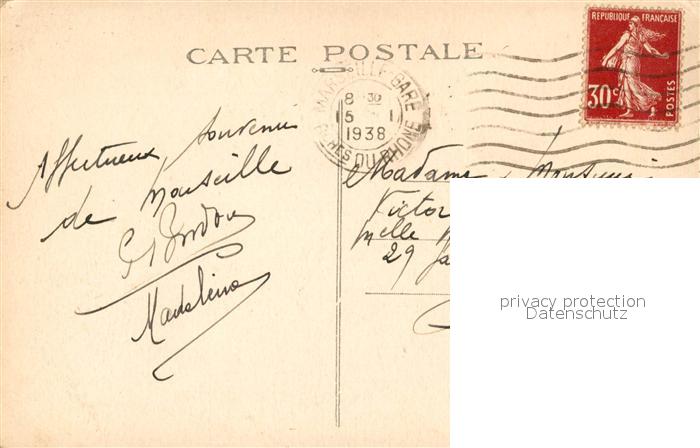 CARTE POSTALE
RÉPUBLIQUE FRANÇAISE
30c
POSTES
MARSEILLE-GARE
8 30
5 1
1938
BCHES DU RHONE
Affectueux souvenir
de Marseille
Madeleine
Madame
Victor
Melle
29
privacy protection
Datenschutz